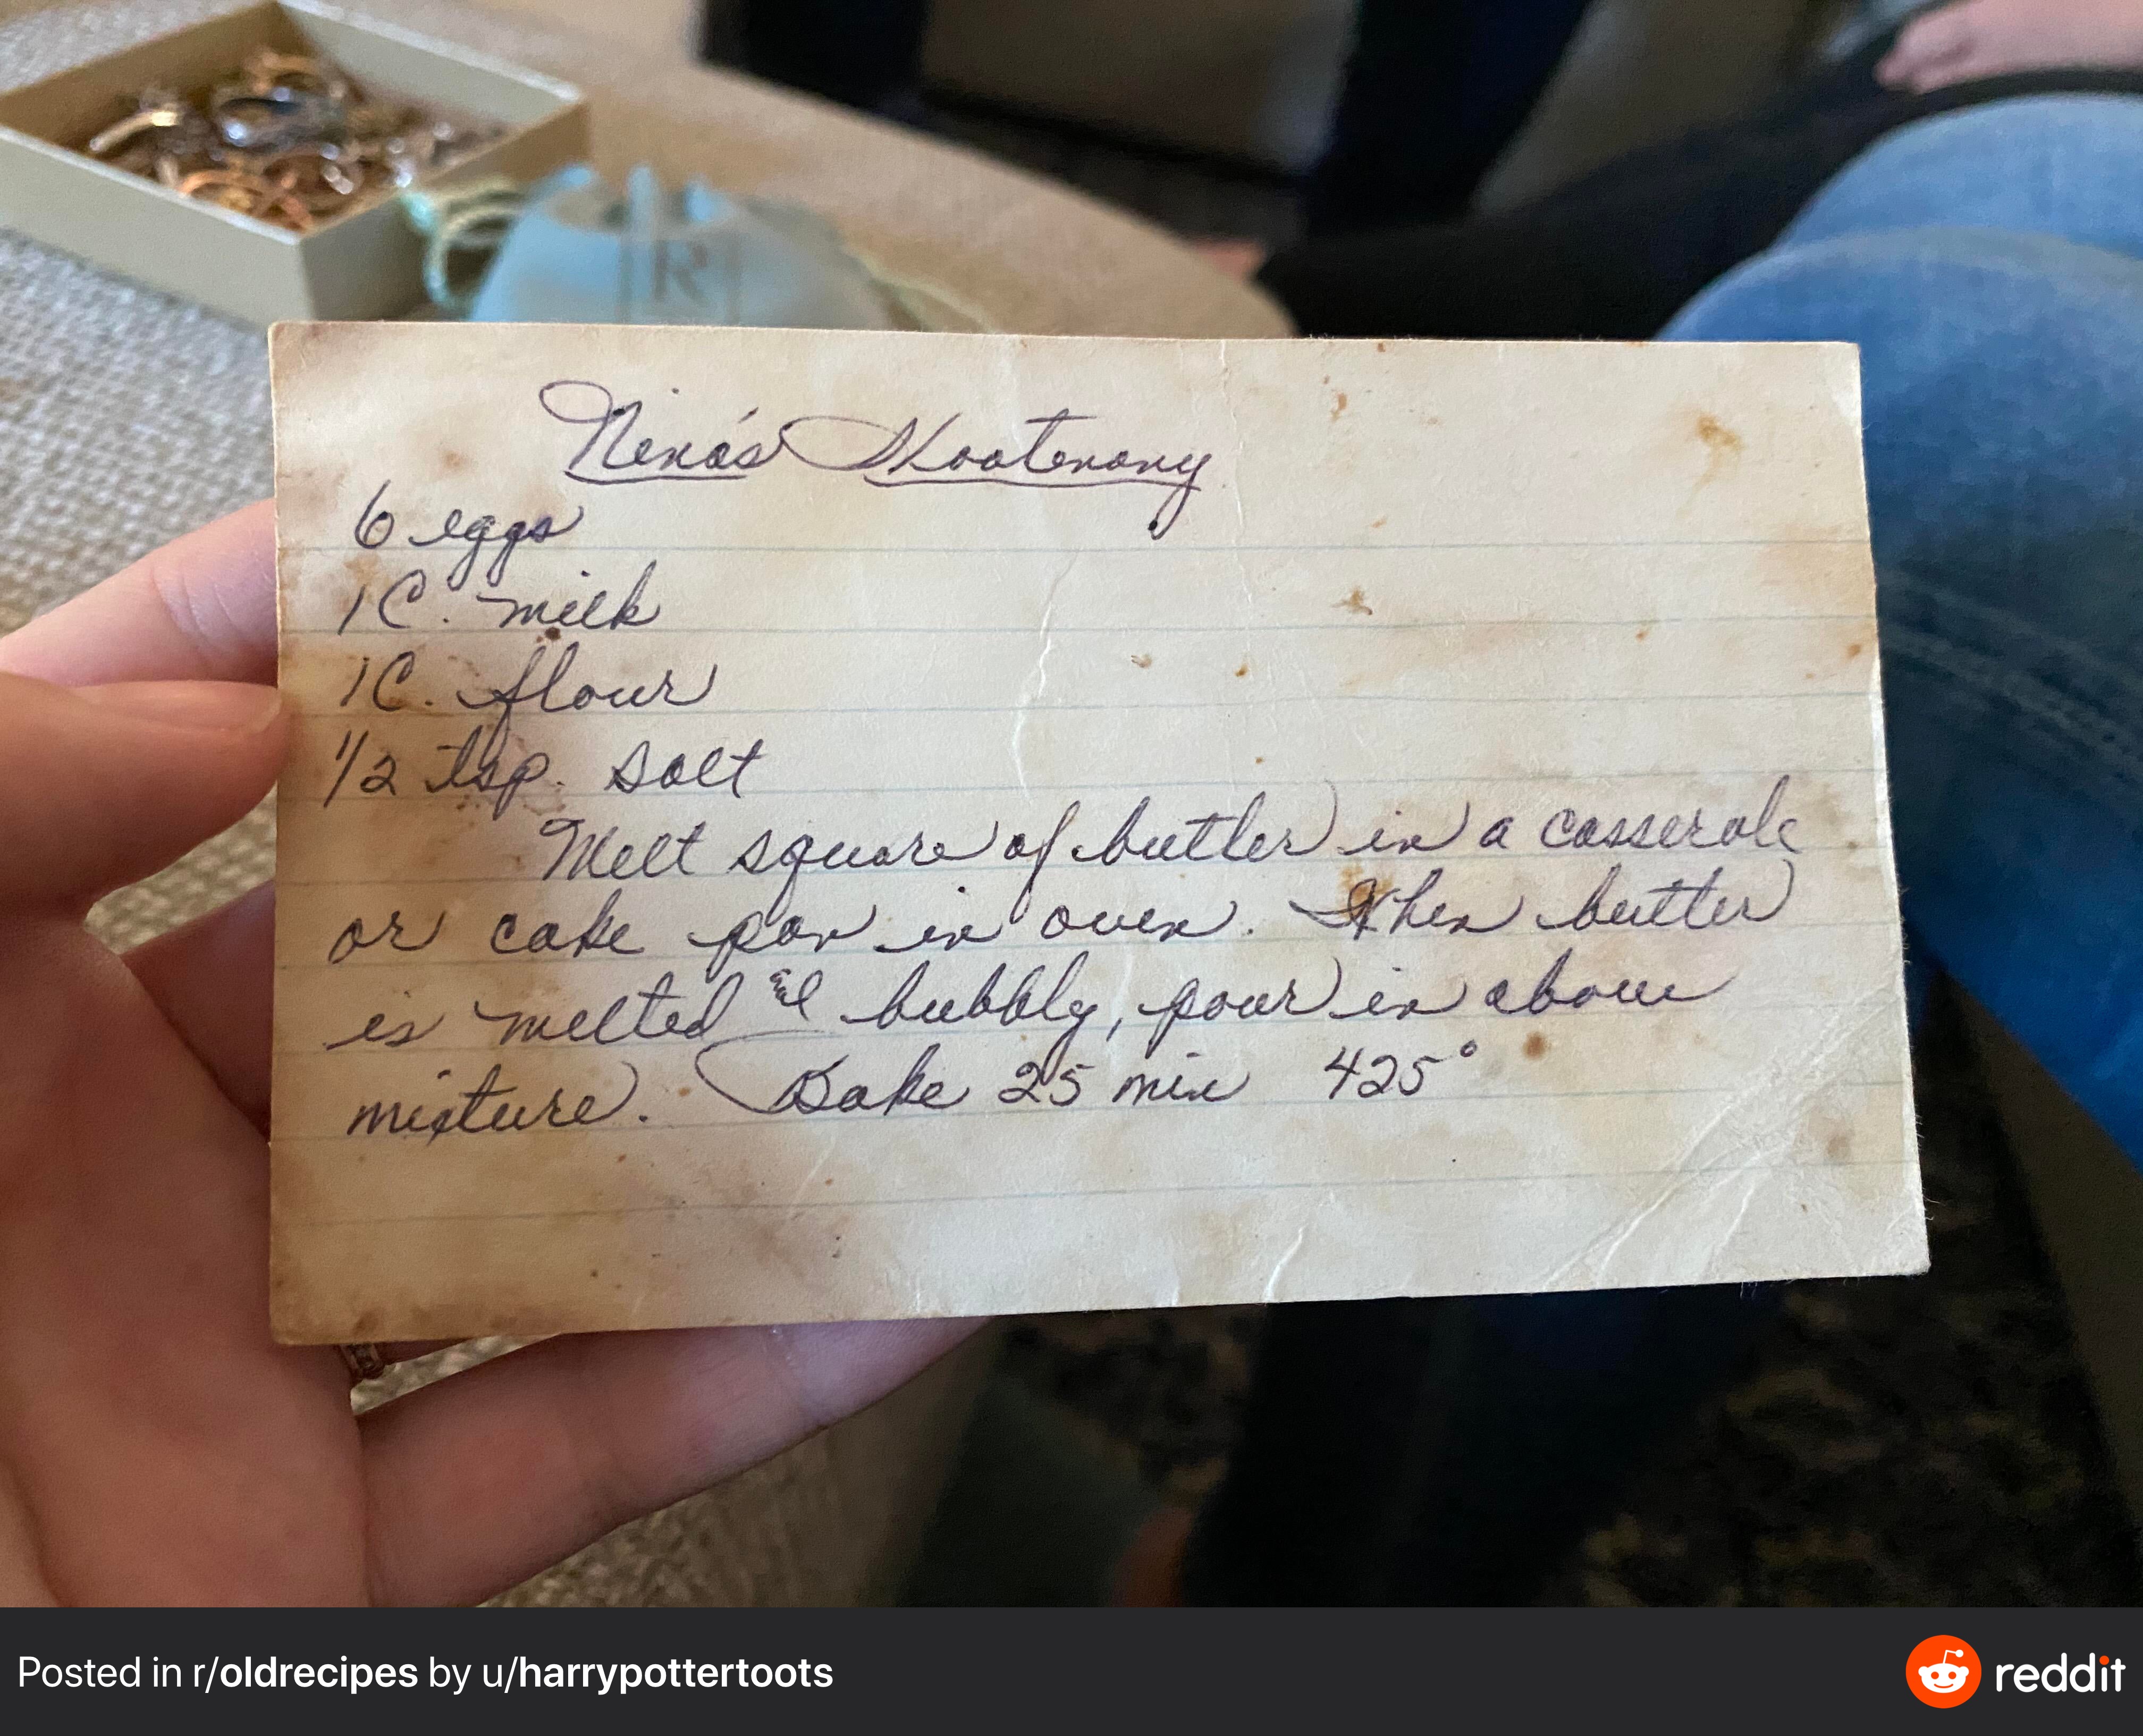 Nena's Kootenany
6 eggs
1 C. milk
1 C. flour
1/2 tsp. salt
Melt square of butter in a casserole
or cake pan in oven. When butter
is melted & bubbly, pour in above
mixture. Bake 25 min 425°
R
Posted in r/oldrecipes by u/harrypottertoots
reddit